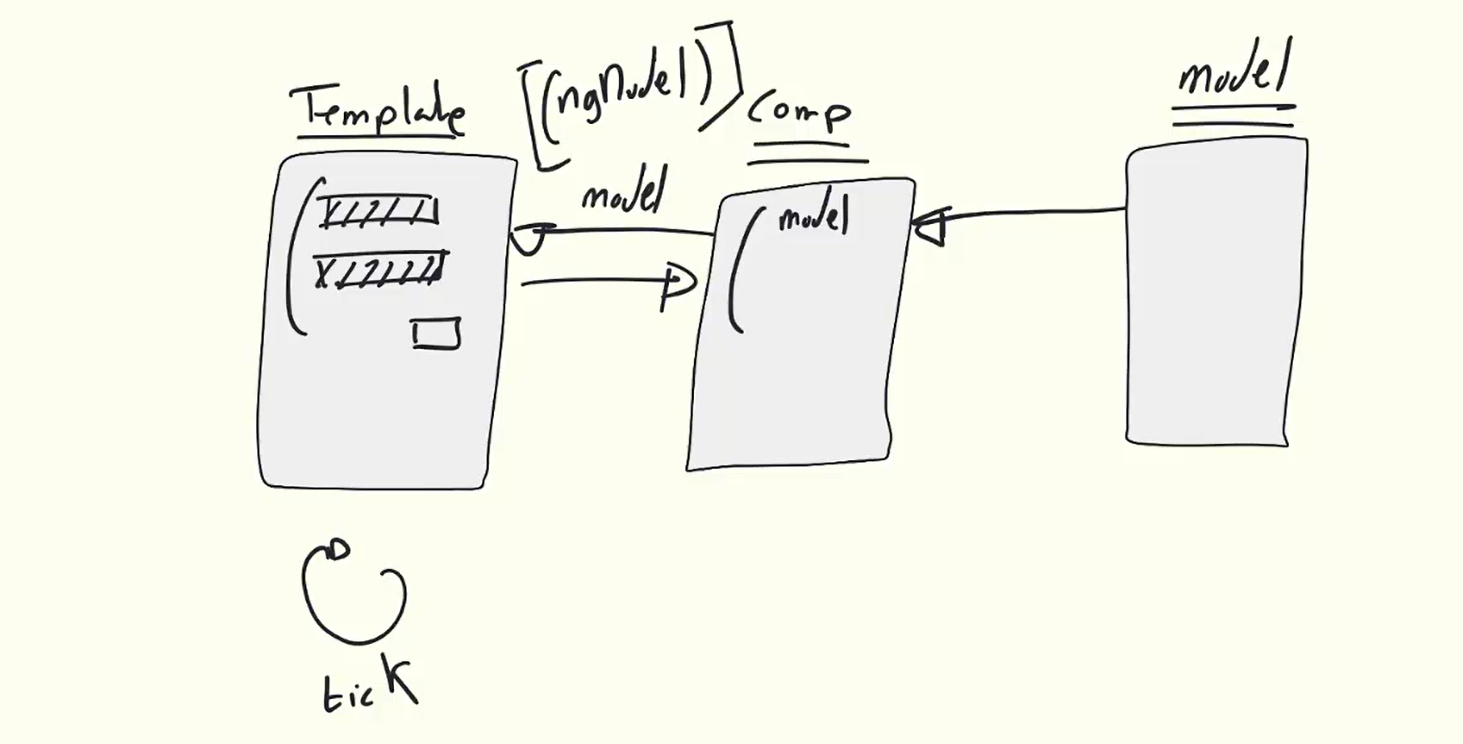 Template
[(ngModel)]
Comp
model
model
model
tick